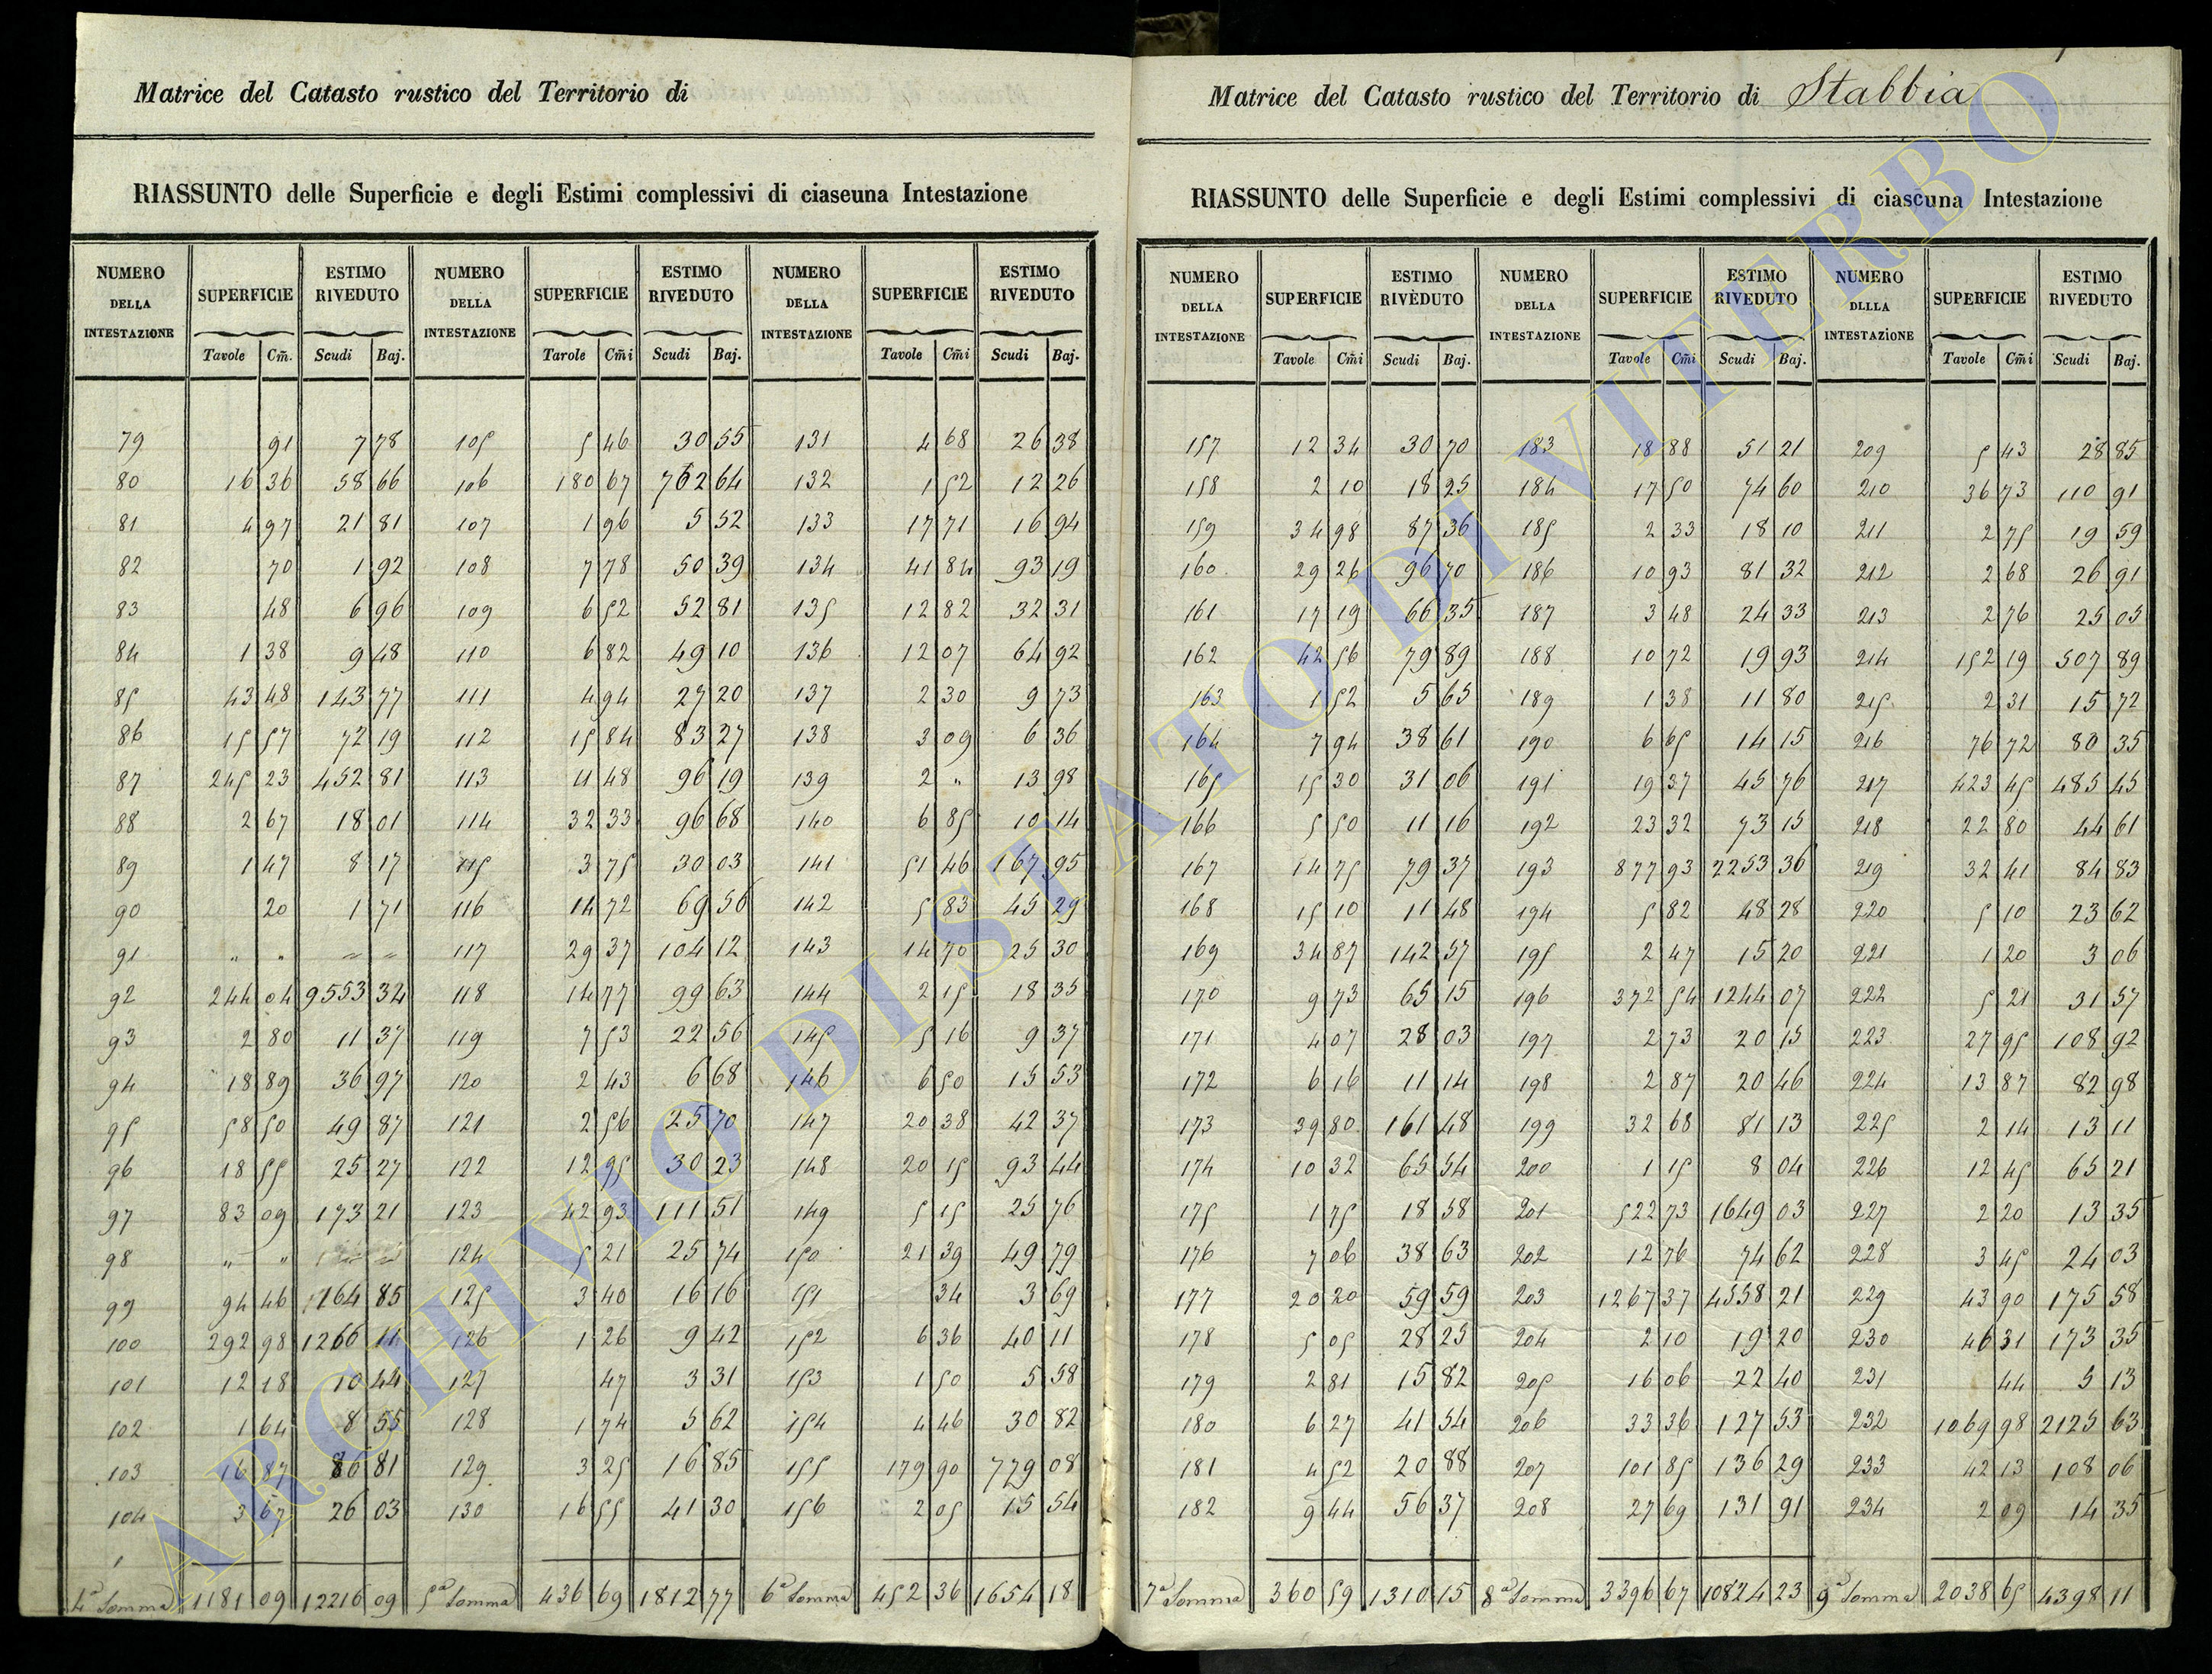 Matrice del Catasto rustico del Territorio di
RIASSUNTO delle Superficie e degli Estimi complessivi di ciaseuna Intestazione
NUMERO DELLA INTESTAZIONE SUPERFICIE ESTIMO RIVEDUTO NUMERO DELLA INTESTAZIONE SUPERFICIE ESTIMO RIVEDUTO NUMERO DELLA INTESTAZIONE SUPERFICIE ESTIMO RIVEDUTO
Tavole Cm̃. Scudi Baj. Tarole Cm̃i Scudi Baj. Tavole Cm̃i Scudi Baj.
79 91 7 78 105 5 46 30 55 131 4 68 26 38
80 16 36 58 66 106 180 67 762 64 132 1 52 12 26
81 4 97 21 81 107 1 96 5 52 133 17 71 16 94
82 70 1 92 108 7 78 50 39 134 41 84 93 19
83 48 6 96 109 6 52 52 81 135 12 82 32 31
84 1 38 9 48 110 6 82 49 10 136 12 07 64 92
85 43 48 143 77 111 4 94 27 20 137 2 30 9 73
86 15 57 72 19 112 15 84 83 27 138 3 09 6 36
87 245 23 452 81 113 11 48 96 19 139 2 " 13 98
88 2 67 18 01 114 32 33 96 68 140 6 85 10 14
89 1 47 8 17 115 3 75 30 03 141 51 46 167 95
90 20 1 71 116 14 72 69 56 142 5 83 45 29
91 " " " " 117 29 37 104 12 143 14 70 25 30
92 244 04 9553 34 118 14 77 99 63 144 2 15 18 35
93 2 80 11 37 119 7 53 22 56 145 5 16 9 37
94 18 89 36 97 120 2 43 6 68 146 6 50 15 53
95 58 50 49 87 121 2 56 25 70 147 20 38 42 37
96 18 55 25 27 122 12 95 30 23 148 20 15 93 44
97 83 09 173 21 123 42 93 111 51 149 5 15 25 76
98 " " 124 5 21 25 74 150 21 39 49 79
99 94 46 164 85 125 3 40 16 16 151 34 3 69
100 292 98 1266 14 126 1 26 9 42 152 6 36 40 11
101 12 18 10 44 127 47 3 31 153 1 50 5 58
102 1 64 8 55 128 1 74 5 62 154 4 46 30 82
103 16 87 86 81 129 3 25 16 85 155 179 90 779 08
104 3 67 26 03 130 16 55 41 30 156 2 05 15 54
4ª Somma 1181 09 12216 09 5ª Somma 436 69 1812 77 6ª Somma 452 36 1654 18
Matrice del Catasto rustico del Territorio di Stabbia
RIASSUNTO delle Superficie e degli Estimi complessivi di ciascuna Intestazione
NUMERO DELLA INTESTAZIONE SUPERFICIE ESTIMO RIVEDUTO NUMERO DELLA INTESTAZIONE SUPERFICIE ESTIMO RIVEDUTO NUMERO DLLLA INTESTAZIONE SUPERFICIE ESTIMO RIVEDUTO
Tavole Cm̃i Scudi Baj. Tavole Cm̃i Scudi Baj. Tavole Cm̃i Scudi Baj.
157 12 34 30 70 183 18 88 51 21 209 5 43 28 85
158 2 10 18 25 184 17 50 74 60 210 36 73 110 91
159 34 98 87 36 185 2 33 18 10 211 2 75 19 59
160 29 26 96 70 186 10 93 81 32 212 2 68 26 91
161 17 19 66 35 187 3 48 24 33 213 2 76 25 05
162 42 56 79 89 188 10 72 19 93 214 152 19 507 89
163 1 52 5 65 189 1 38 11 80 215 2 31 15 72
164 7 94 38 61 190 6 65 14 15 216 76 72 80 35
165 15 30 31 06 191 19 37 45 76 217 423 45 485 45
166 5 50 11 16 192 23 32 73 15 218 22 80 44 61
167 14 75 79 37 193 877 93 2253 36 219 32 41 84 83
168 15 10 11 48 194 5 82 48 28 220 5 10 23 62
169 34 87 142 57 195 2 47 15 20 221 1 20 3 06
170 9 73 65 15 196 372 54 1244 07 222 5 21 31 57
171 4 07 28 03 197 2 73 20 15 223 27 95 108 92
172 6 16 11 14 198 2 87 20 46 224 13 87 82 98
173 39 80 161 48 199 32 68 81 13 225 2 14 13 11
174 10 32 65 54 200 1 15 8 04 226 12 45 65 21
175 1 75 18 58 201 522 73 1649 03 227 2 20 13 35
176 7 06 38 63 202 12 76 74 62 228 3 45 24 03
177 20 20 59 59 203 1267 37 4558 21 229 43 90 175 58
178 5 05 28 25 204 2 10 19 20 230 46 31 173 35
179 2 81 15 82 205 16 06 22 40 231 44 5 13
180 6 27 41 54 206 33 36 127 53 232 1069 98 2125 63
181 4 52 20 88 207 101 85 136 29 233 42 13 108 06
182 9 44 56 37 208 27 69 131 91 234 2 09 14 35
7ª Somma 360 59 1310 15 8ª Somma 3396 67 10824 23 9ª Somma 2038 65 4398 11
ARCHIVIO DI STATO DI VITERBO